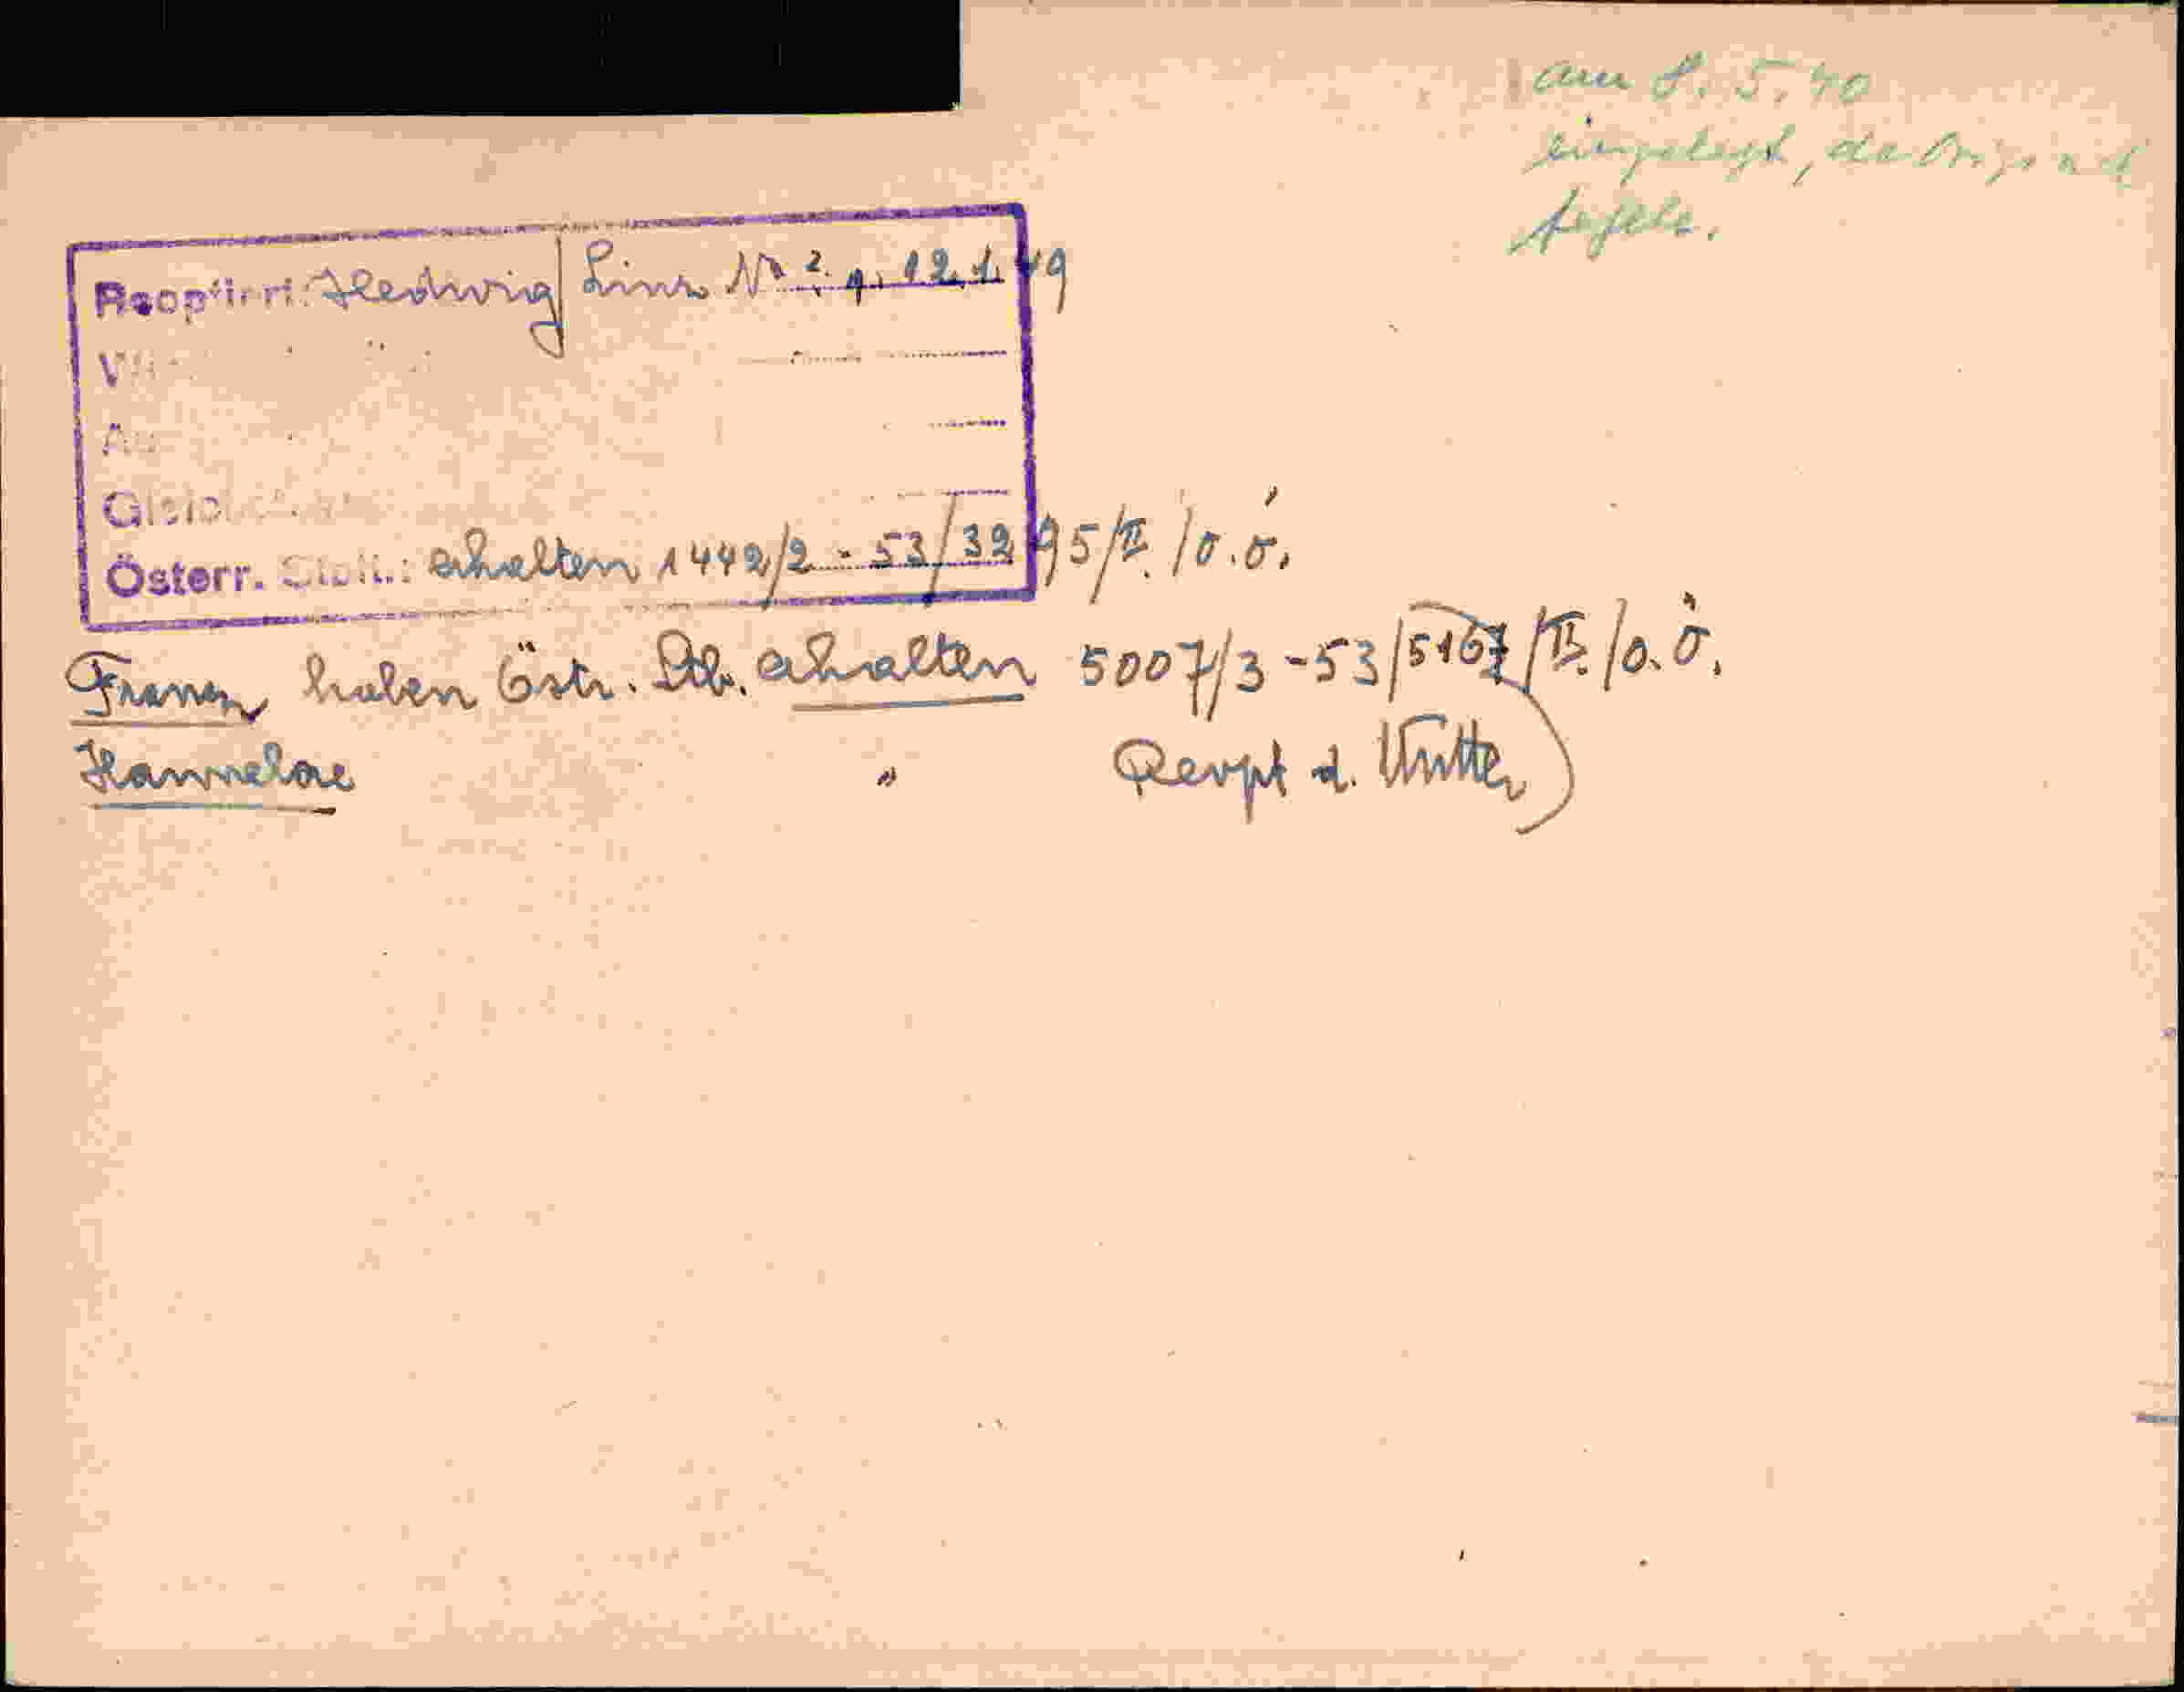 am 8. 5. 40
eingelegt, da Original
fehlt.
Reoptiert: Hedwig Linz No 2. 1. 12. 1. 49
Österr. Stb.: erhalten 1442/2 - 53/3295/II./O.Ö.
Franz haben Östr. Stb. erhalten 5007/3 - 53/5167/II./O.Ö.
Hannelore " Reopt d. Mutter)